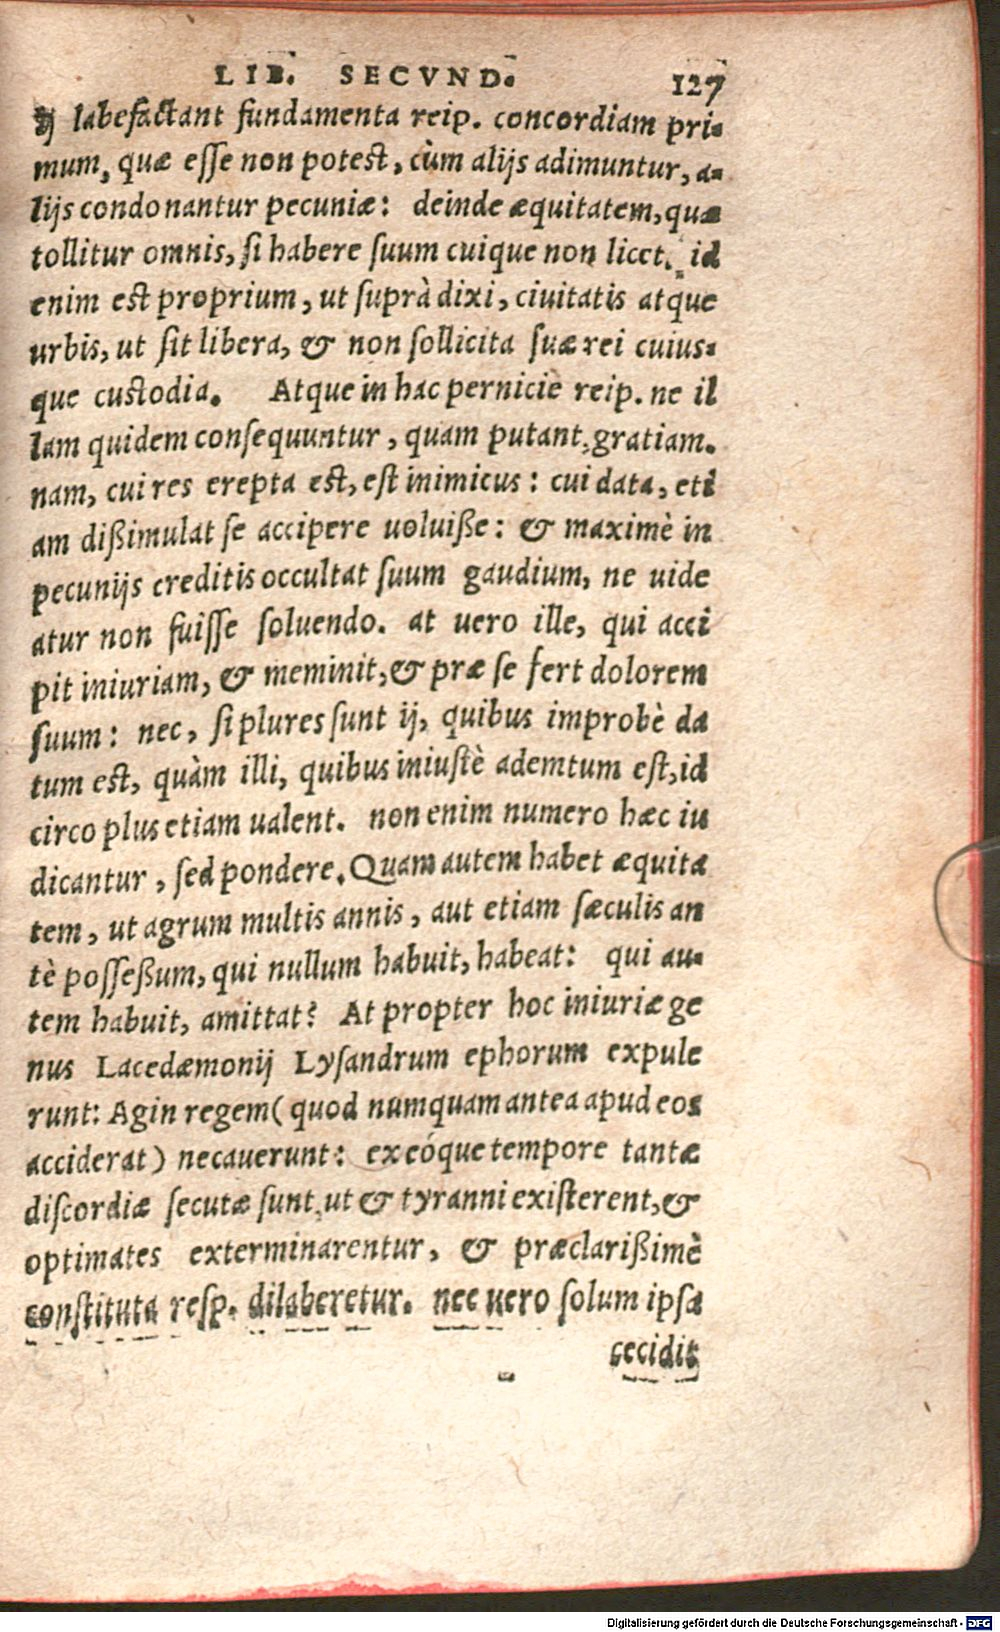 LIB. SECVND. 127
ij labefactant fundamenta reip. concordiam pri-
mum, quæ esse non potest, cùm alijs adimuntur, a-
lijs condonantur pecuniæ: deinde æquitatem, quæ
tollitur omnis, si habere suum cuique non licet. id
enim est proprium, ut suprà dixi, ciuitatis atque
urbis, ut sit libera, & non sollicita suæ rei cuius-
que custodia. Atque in hac pernicie reip. ne il
lam quidem consequuntur, quam putant, gratiam.
nam, cui res erepta est, est inimicus: cui data, eti
am dißimulat se accipere uoluiße: & maximè in
pecunijs creditis occultat suum gaudium, ne uide
atur non fuisse soluendo. at uero ille, qui acci
pit iniuriam, & meminit, & præ se fert dolorem
suum: nec, si plures sunt ij, quibus improbè da
tum est, quàm illi, quibus iniustè ademtum est, id
circo plus etiam ualent. non enim numero hæc iu
dicantur, sed pondere. Quam autem habet æquita
tem, ut agrum multis annis, aut etiam sæculis an
tè posseßum, qui nullum habuit, habeat: qui au-
tem habuit, amittat? At propter hoc iniuriæ ge
nus Lacedæmonij Lysandrum ephorum expule
runt: Agin regem (quod numquam antea apud eos
acciderat) necauerunt: ex eóque tempore tantæ
discordiæ secutæ sunt, ut & tyranni existerent, &
optimates exterminarentur, & præclarißimè
constituta resp. dilaberetur. nec uero solum ipsa
cecidit
Digitalisierung gefördert durch die Deutsche Forschungsgemeinschaft - DFG